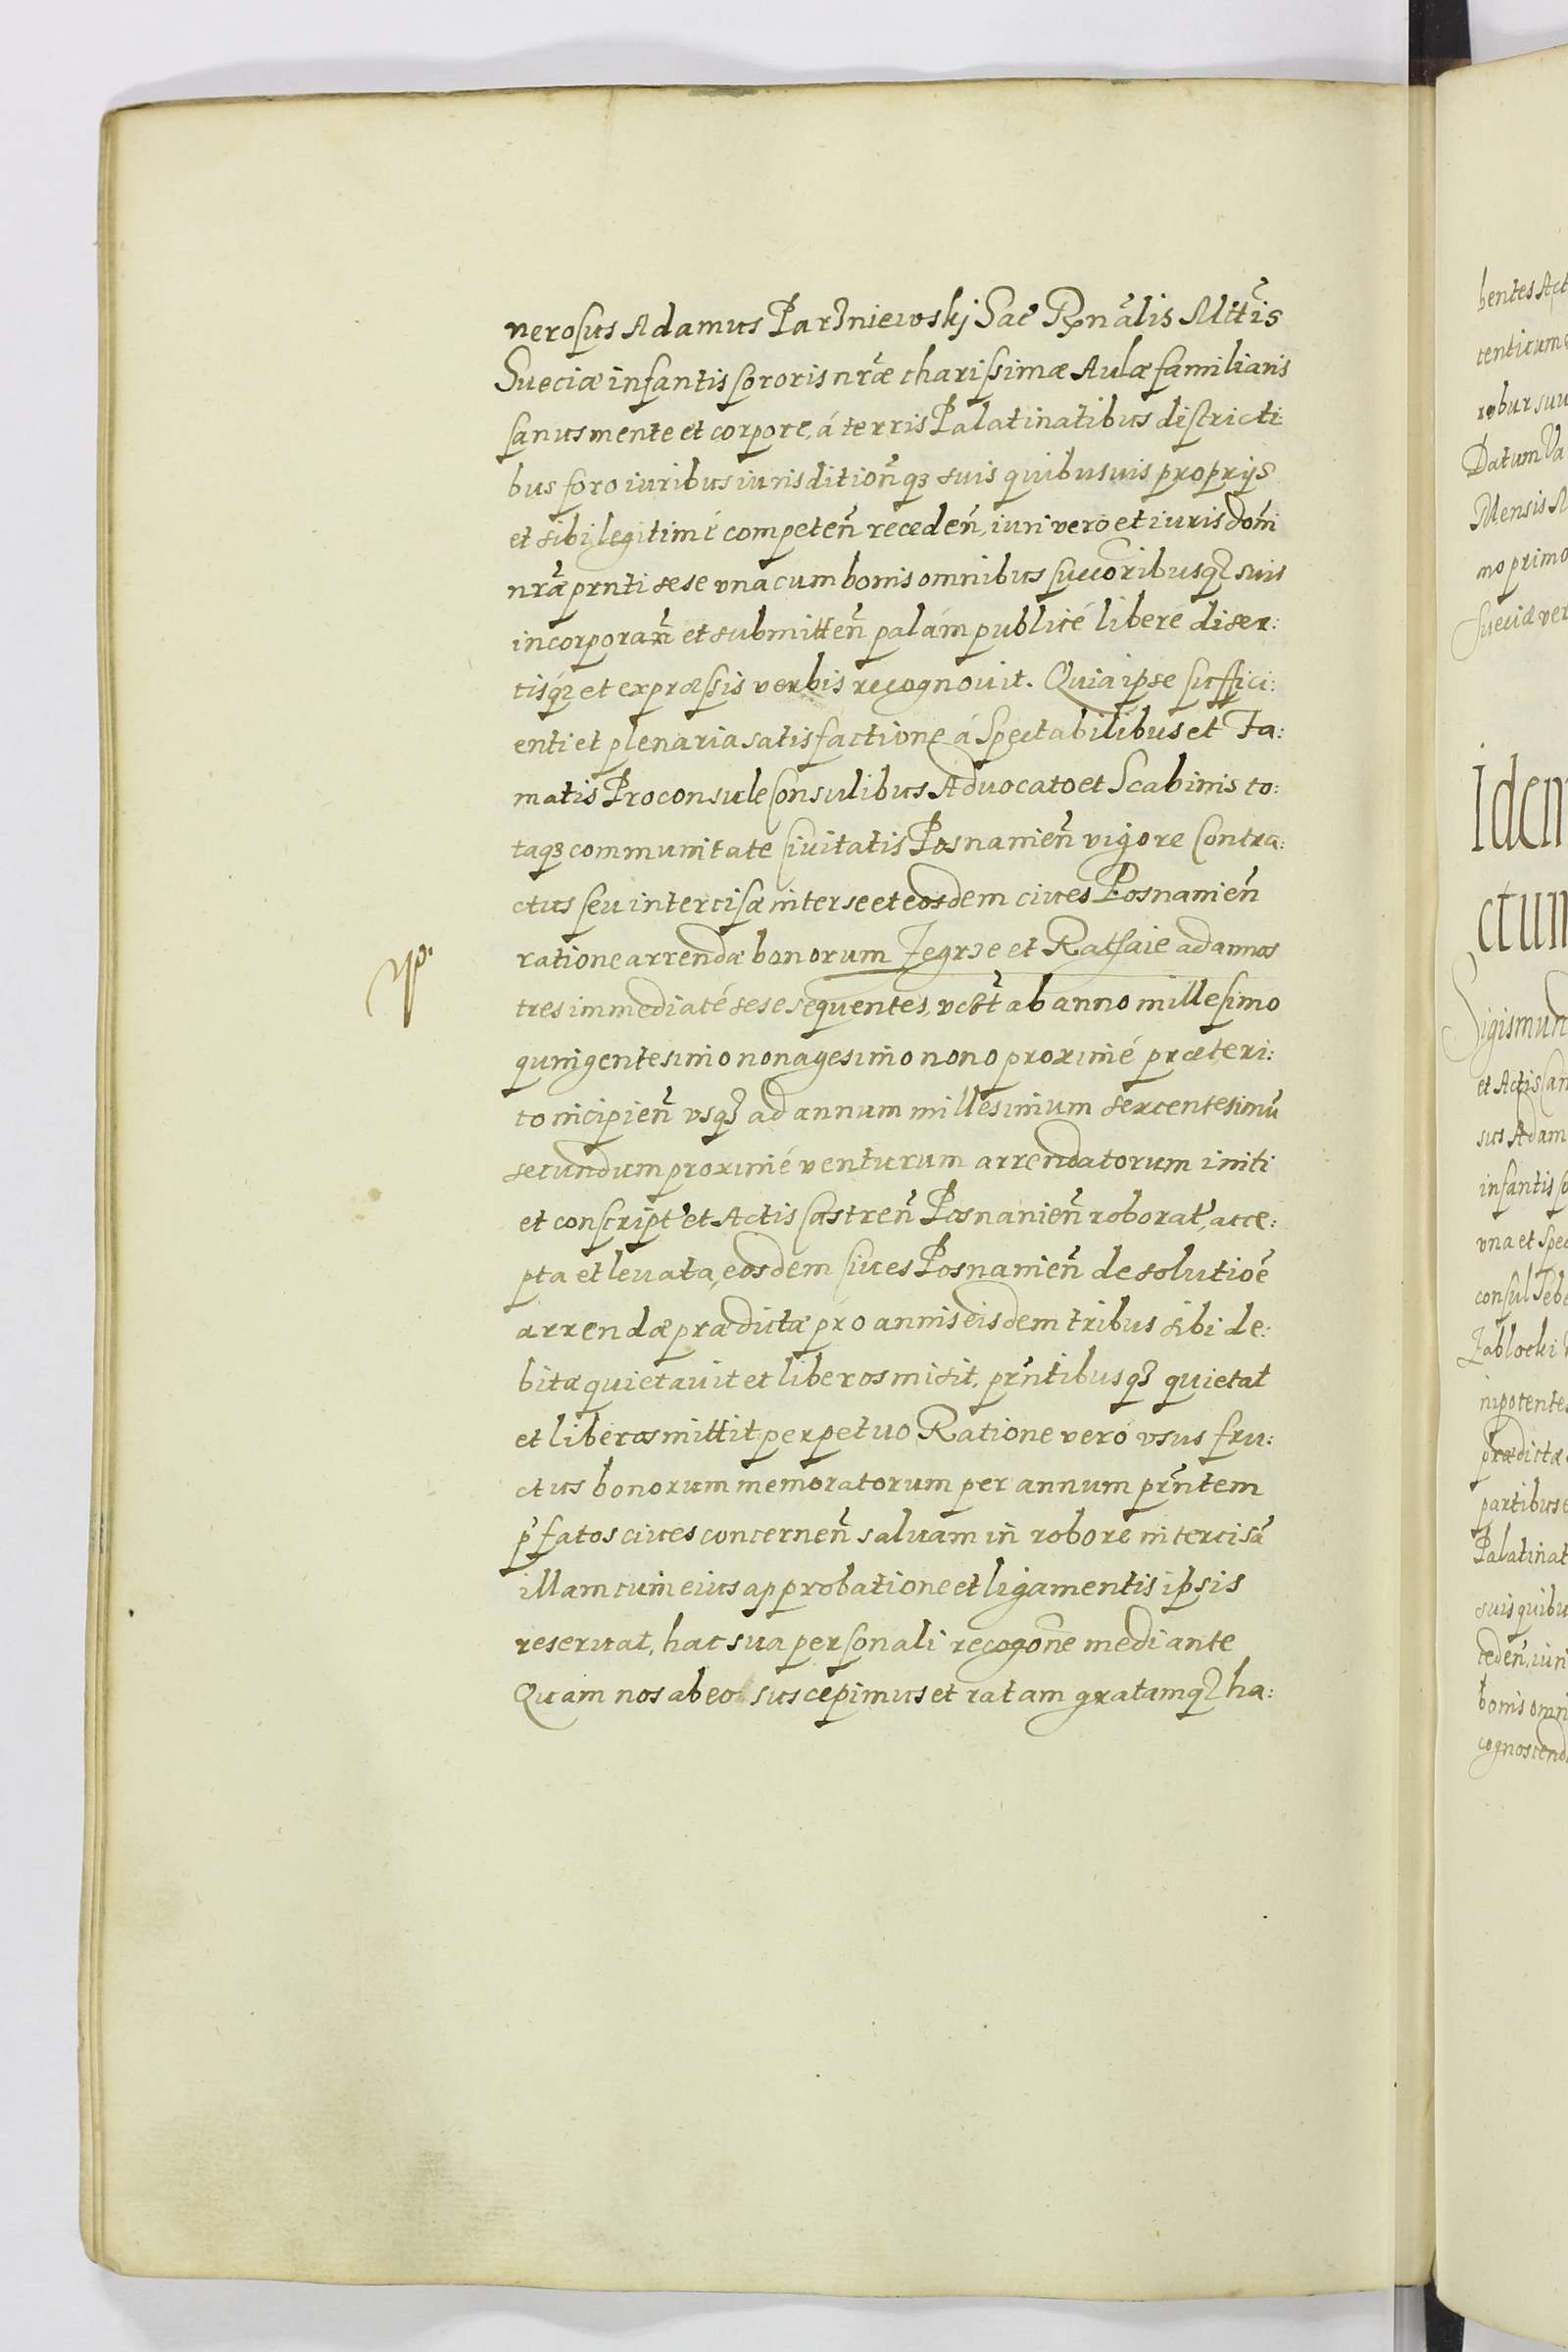 nerosus Adamus Parzniewskj Sac̃ Rgnãlis Mttĩs
Sueciæ infantis sororis nrãe charissimæ Aulæ familiaris
sanus mente et corpore, á terris Palatinatibus districti
bus foro iuribus iurisdition̄ q3 suis quibusuis proprijs
et sibi legitimé competen̄ receden̄, iuri vero et iurisdōni
nrãe prnti sese vna cum bonis omnibus succōribusq3 suis
incorporan̄ et submitten̄ palám publicé liberé diser:
tisq́3 et expræssis verbis recognouit. Quia ipse suffici:
enti et plenaria satisfactione á Spectabilibus et Fa:
matis Proconsule Consulibus Aduocato et Scabinis to:
taq3 communitate Ciuitatis Posnanien̄ vigore Contra:
ctus seu intercisæ inter se et eosdem ciues Posnanien̄
ratione arrendæ bonorum Zegrze et Rattaie ad annos
tres immediaté sese sequentes, vcƺt ab anno millesimo
quingentesimo nonagesimo nono proximé præteri:
to incipien̄ vsq3 ad annum millesimum sexcentesimū
secundum proximé venturum arrendatorum initi
et conscript̃ et Actis Castren̄ Posnanien̄ roborat̃, acce:
pta et leuata, eosdem Ciues Posnanien̄ de solutiōe
arrendæ prædictæ pro annis eisdem tribus sibi de:
bitæ quietauit et liberos misit, prn̄tibusq3 quietat
et liberos mittit perpetuo Ratione veró vsus fru:
ctus bonorum memoratorum per annum prn̄tem
p̃fatos ciues concernen̄ saluam in robore intercisā
illam cum eius approbatione et ligamentis ipsis
reseruat, hac sua personali recogōne mediante
Quam nos ab eo suscepimus et ratam gratamq3 ha:
bentes Act
tenticum
robur suu
Datum Va
Mensis M
mo primo
Sueciæ ver
Idem
ctum
Sigismun
et Actis Can
sus Adam
infantis so
vna et Spec
consul Seba
Zablocki
nipotentes
prædictæ
partibus e
Palatinat
suis quibu
ceden̄, iuri
bonis omni
cognoscend